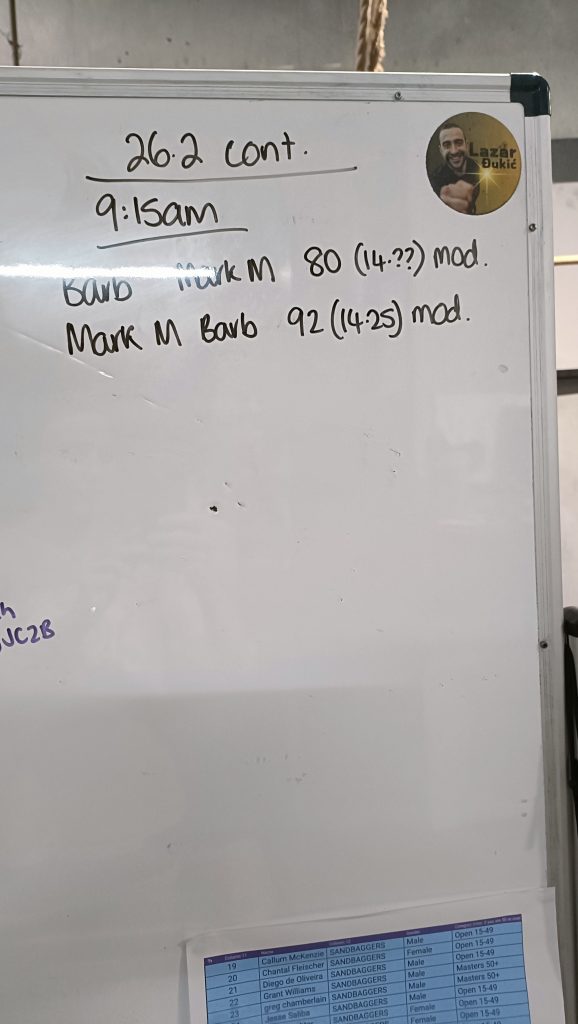 26.2 cont.
9:15am
Barb Mark M 80 (14.??) mod.
Mark M Barb 92 (14.25) mod.
Lazar
Đukić
JC2B
19 Callum McKenzie SANDBAGGERS Male Open 15-49
20 Chantal Fleischer SANDBAGGERS Female Open 15-49
21 Diego de Oliveira SANDBAGGERS Male Open 15-49
22 Grant Williams SANDBAGGERS Male Masters 50+
23 greg chamberlain SANDBAGGERS Male Masters 50+
Jesse Saliba SANDBAGGERS Female Open 15-49
SANDBAGGERS Female Open 15-49